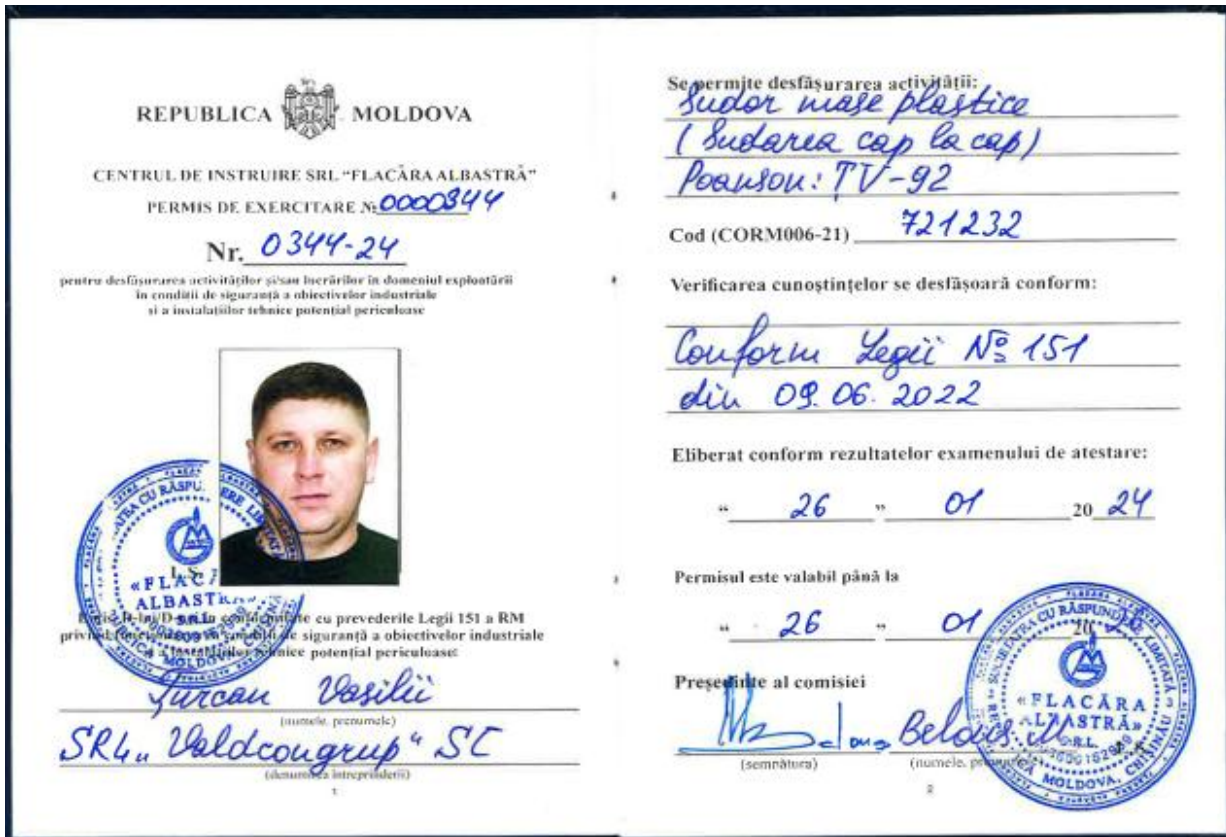 REPUBLICA MOLDOVA
CENTRUL DE INSTRUIRE SRL "FLACĂRA ALBASTRĂ"
PERMIS DE EXERCITARE № 0000344
Nr. 0344-24
pentru desfășurarea activităților și/sau lucrărilor în domeniul exploatării
în condiții de siguranță a obiectivelor industriale
și a instalațiilor tehnice potențial periculoase
L.S.
«FLACĂRA
ALBASTRĂ»
S.R.L.
cu prevederile Legii 151 a RM
de siguranță a obiectivelor industriale
tehnice potențial periculoase:
Țurcan Vasilii
(numele, prenumele)
SRL „Valdcongrup" SC
(denumirea întreprinderii)
1
Se permite desfășurarea activității:
Sudor mase plastice
(Sudarea cap la cap)
Poanson: ȚV-92
Cod (CORM006-21) 721232
Verificarea cunoștințelor se desfășoară conform:
Conform Legii № 151
din 09.06.2022
Eliberat conform rezultatelor examenului de atestare:
" 26 " 01 20 24
Permisul este valabil până la
" 26 " 01 20 26
Președinte al comisiei
Belous M.
(semnătura) (numele, prenumele)
«FLACĂRA
ALBASTRĂ»
S.R.L.
MOLDOVA, CHIȘINĂU
2